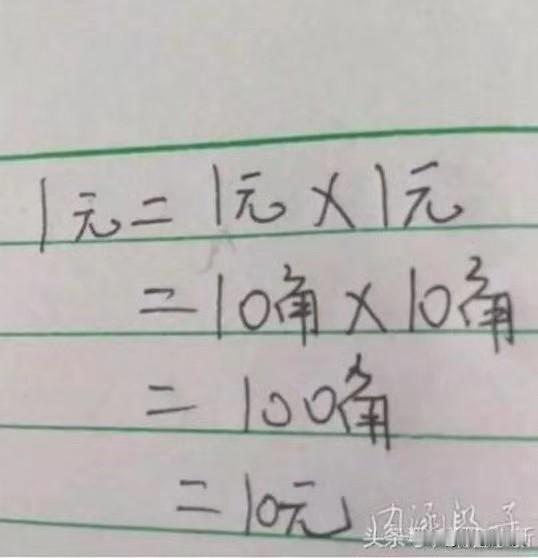 1元=1元×1元
=10角×10角
=100角
=10元
内涵段子
头条号